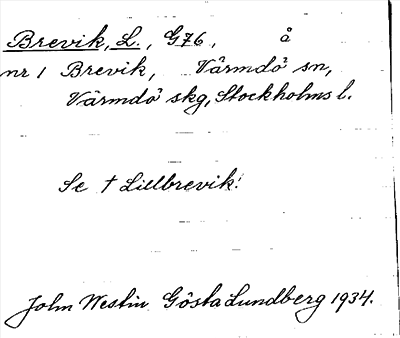 Brevik, L., G76, å
nr 1 Brevik, Värmdö sn,
Värmdö skg, Stockholms l.
Se † Lillbrevik!
John Westin Gösta Lundberg 1934.